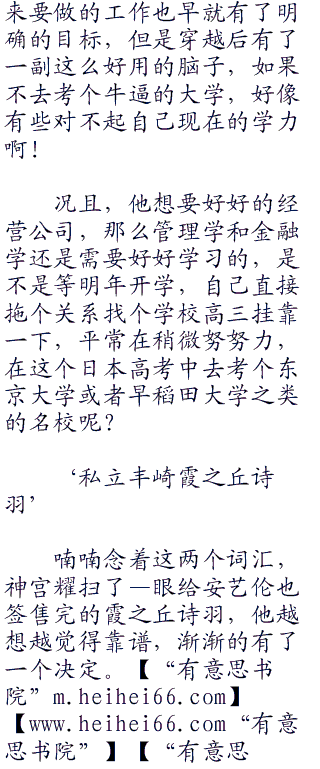 来要做的工作也早就有了明
确的目标，但是穿越后有了
一副这么好用的脑子，如果
不去考个牛逼的大学，好像
有些对不起自己现在的学力
啊！
况且，他想要好好的经
营公司，那么管理学和金融
学还是需要好好学习的，是
不是等明年开学，自己直接
拖个关系找个学校高三挂靠
一下，平常在稍微努努力，
在这个日本高考中去考个东
京大学或者早稻田大学之类
的名校呢？
‘私立丰崎霞之丘诗
羽’
喃喃念着这两个词汇，
神宫耀扫了一眼给安艺伦也
签售完的霞之丘诗羽，他越
想越觉得靠谱，渐渐的有了
一个决定。【“有意思书
院”m.heihei66.com】
【www.heihei66.com“有意
思书院”】【“有意思